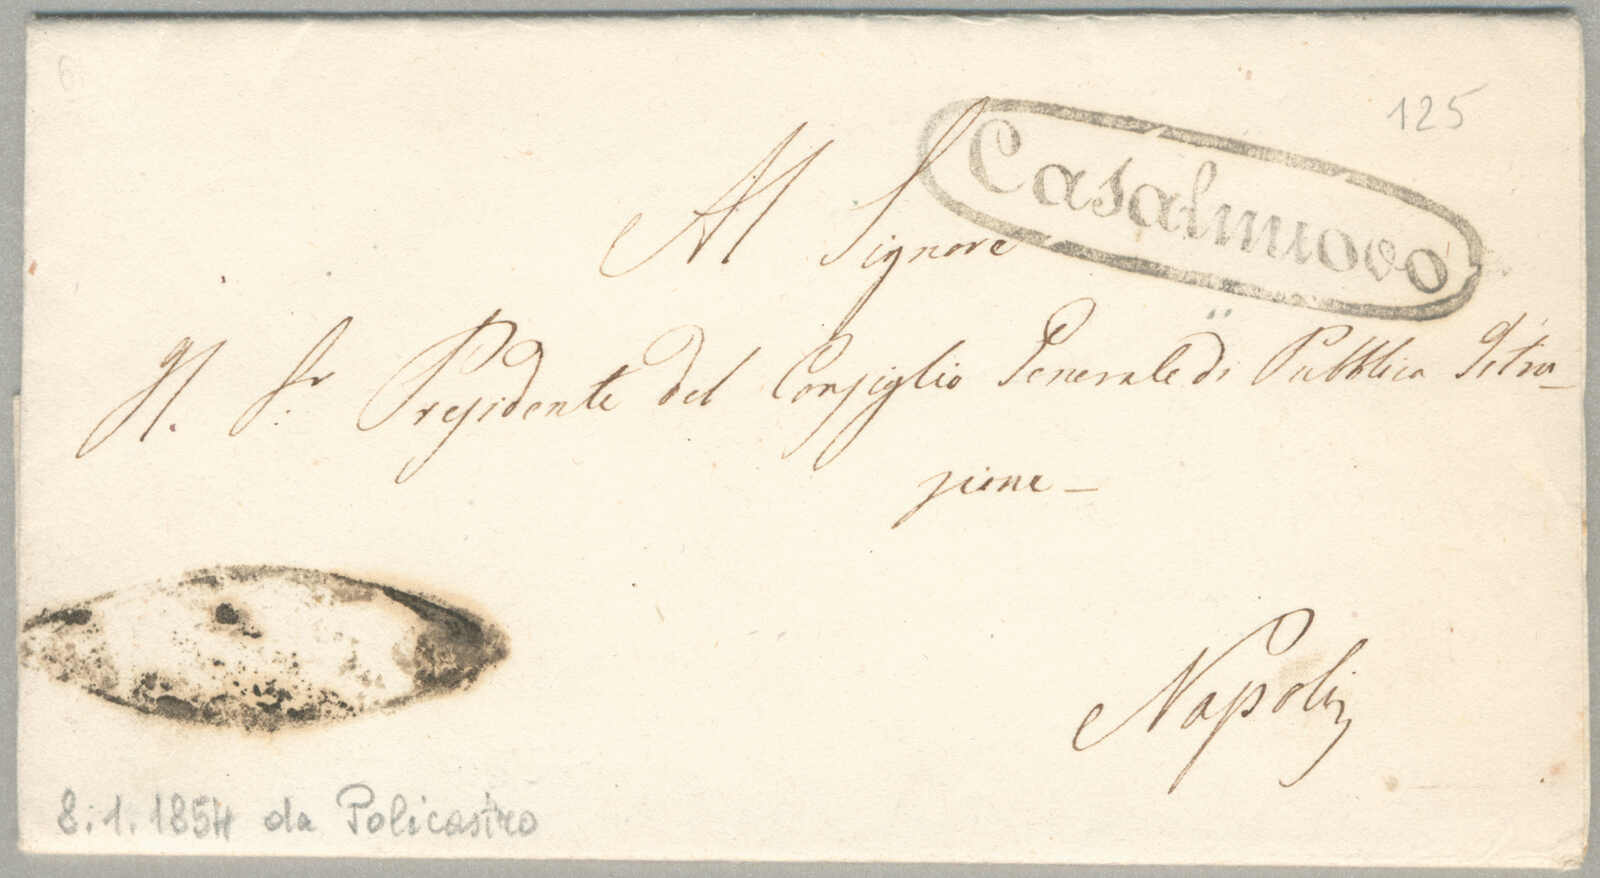 6
125
Casalnuovo
Al Signore
Il Sr. Presidente del Consiglio Generale di Pubblica Istru-
zione -
Napoli
8.1.1854 da Policastro